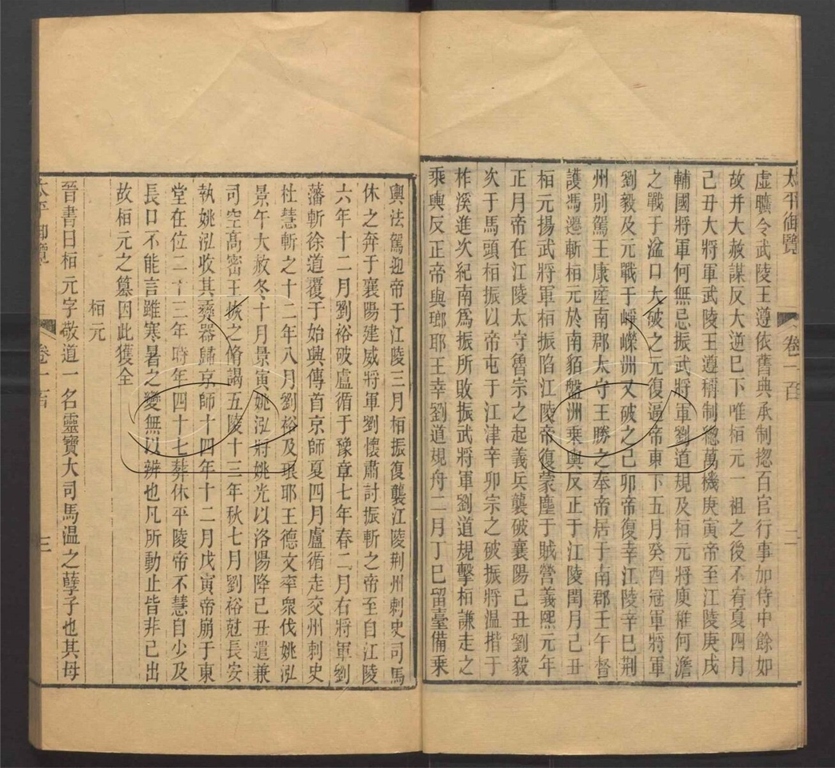 太平御覽
卷一百
二
虛曠令武陵王遵依舊典承制揔百官行事加侍中餘如
故并大赦謀反大逆已下唯桓元一祖之後不宥夏四月
己丑大將軍武陵王遵稱制總萬機庚寅帝至江陵庚戌
輔國將軍何無忌振武將軍劉道規及桓元將庾稚何澹
之戰于湓口大破之元復逼帝東下五月癸酉冠軍將軍
劉毅及元戰于崢嶸洲又破之己卯帝復幸江陵辛巳荆
州別駕王康產南郡太守王騰之奉帝居于南郡壬午督
護馮遷斬桓元於南貊盤洲乘輿反正于江陵閏月己丑
桓元揚武將軍桓振陷江陵帝復蒙塵于賊營義熙元年
正月帝在江陵太守魯宗之起義兵襲破襄陽己丑劉毅
次于馬頭桓振以帝屯于江津辛卯宗之破振將溫楷于
柞溪進次紀南為振所敗振武將軍劉道規擊桓謙走之
乘輿反正帝與瑯耶王幸劉道規舟二月丁巳留臺備乘
輿法駕迎帝于江陵三月桓振復襲江陵荆州刺史司馬
休之奔于襄陽建威將軍劉懷肅討振斬之帝至自江陵
六年十二月劉裕破盧循于豫章七年春二月右將軍劉
藩斬徐道覆于始興傳首京師夏四月盧循走交州刺史
杜慧斬之十二年八月劉裕及琅耶王德文率衆伐姚泓
景午大赦冬十月景寅姚泓將姚光以洛陽降己丑遣兼
司空高密王恢之脩謁五陵十三年秋七月劉裕尅長安
執姚泓收其彝器歸京師十四年十二月戊寅帝崩于東
堂在位二十三年時年四十七葬休平陵帝不慧自少及
長口不能言雖寒暑之變無以辨也凡所動止皆非己出
故桓元之篡因此獲全
桓元
晉書曰桓元字敬道一名靈寶大司馬溫之孽子也其母
太平御覽
卷一百
三